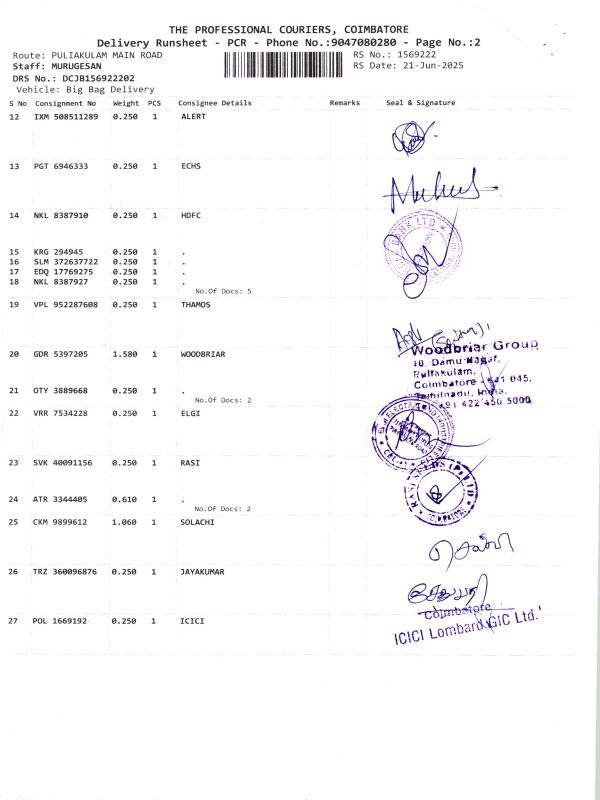 THE PROFESSIONAL COURIERS, COIMBATORE
Delivery Runsheet - PCR - Phone No.:9047080280 - Page No.:2
Route: PULIAKULAM MAIN ROAD RS No.: 1569222
Staff: MURUGESAN RS Date: 21-Jun-2025
DRS No.: DCJB156922202
Vehicle: Big Bag Delivery
S No Consignment No Weight PCS Consignee Details Remarks Seal & Signature
12 IXM 508511289 0.250 1 ALERT
13 PGT 6946333 0.250 1 ECHS
14 NKL 8387910 0.250 1 HDFC
BANK LTD
15 KRG 294945 0.250 1 .
16 SLM 372637722 0.250 1 .
17 EDQ 17769275 0.250 1 .
18 NKL 8387927 0.250 1 .
No.Of Docs: 5
19 VPL 952287608 0.250 1 THAMOS
20 GDR 5397205 1.580 1 WOODBRIAR
Woodbriar Group
10, Damu Nagar,
Puliakulam,
Coimbatore - 641 045.
Tamilnadu, India.
+91 422 450 5000
21 OTY 3889668 0.250 1 .
No.Of Docs: 2
22 VRR 7534228 0.250 1 ELGI
23 SVK 40091156 0.250 1 RASI
RASI SEEDS (P) LTD
24 ATR 3344405 0.610 1 .
No.Of Docs: 2
25 CKM 9899612 1.060 1 SOLACHI
26 TRZ 360096876 0.250 1 JAYAKUMAR
27 POL 1669192 0.250 1 ICICI
Coimbatore
ICICI Lombard GIC Ltd.